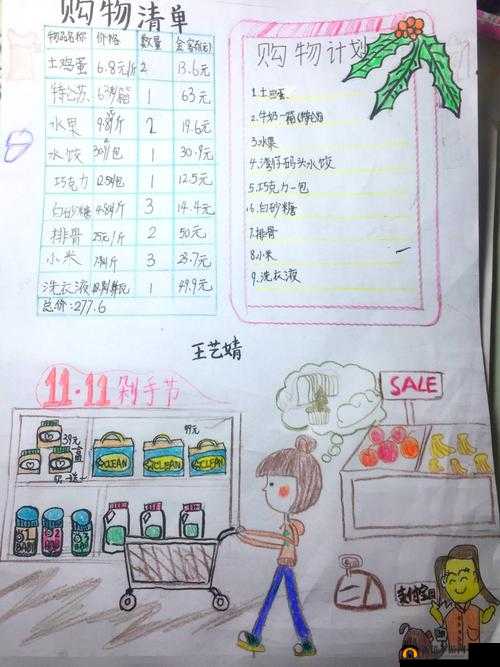 购物清单
物品名称 价格 数量 金额(元)
土鸡蛋 6.8元/斤 2 13.6元
特仑苏 63元/箱 1 63元
水果 9.8/斤 2 19.6元
水饺 30.9/包 1 30.9元
巧克力 12.5/包 1 12.5元
白砂糖 4.8/斤 3 14.4元
排骨 25元/斤 2 50元
小米 3 23.7元
洗衣液 1 49.9元
总价:277.6
购物计划
1.土鸡蛋
2.牛奶一箱(特仑苏)
3.水果
4.湾仔码头水饺
5.巧克力一包
6.白砂糖
7.排骨
8.小米
9.洗衣液
王艺婧
11.11剁手节
SALE
39元
99元
CLEAN
CLEAN
CLEAN
1
2
3
支付宝